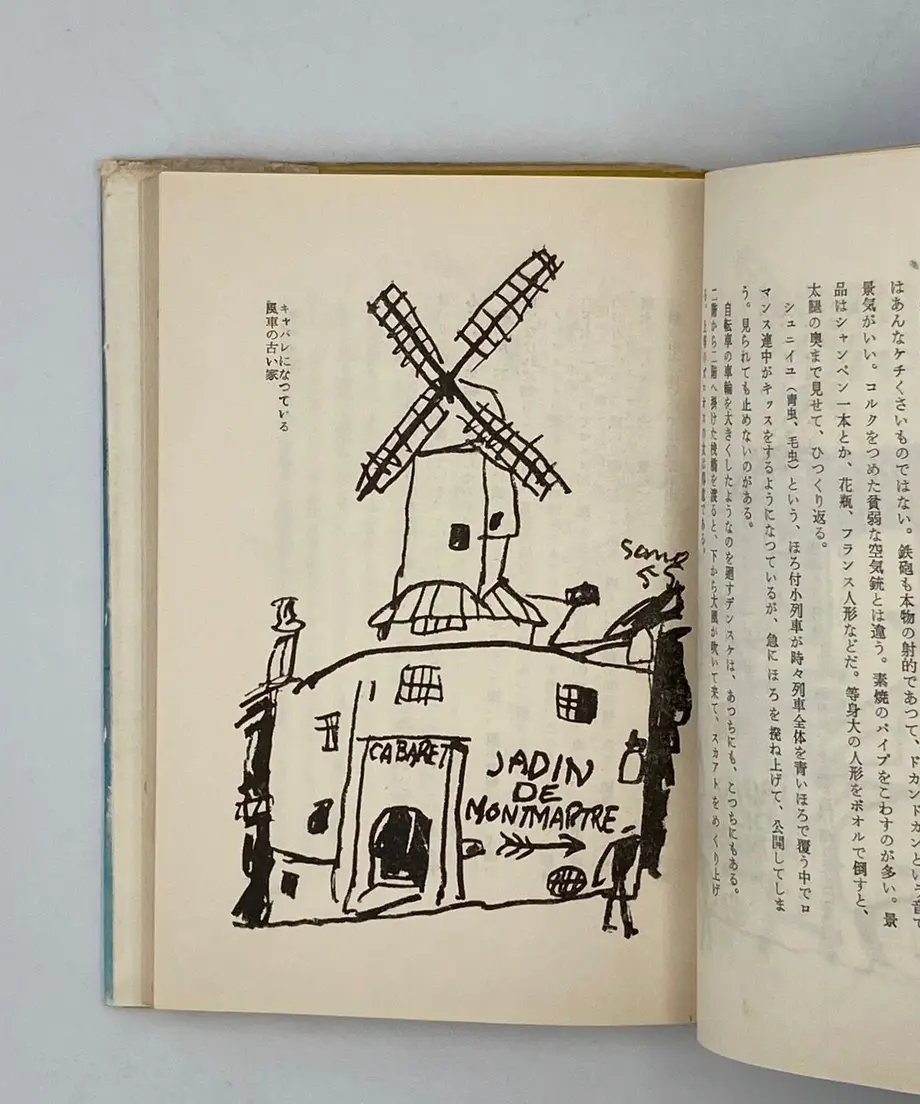 はあんなケチくさいものではない。鉄砲も本物の射的であつて、ドカンドカンという音で
景気がいい。コルクをつめた貧弱な空気銃とは違う。素焼のパイプをこわすのが多い。景
品はシャンペン一本とか、花瓶、フランス人形などだ。等身大の人形をボオルで倒すと、
太腿の奥まで見せて、ひつくり返る。
シュニイユ（青虫、毛虫）という、ほろ付小列車が時々列車全体を青いほろで覆う中でロ
マンス連中がキッスをするようになつているが、急にほろを撥ね上げて、公開してしま
う。見られても止めないのがある。
自転車の車輪を大きくしたようなのを廻すデンスケは、あつちにも、こつちにもある。
二階から二階へ掛けた桟橋を渡ると、下から大風が吹いて来て、スカアトをめくり上げ
キャバレになつている
風車の古い家
CABARET
JADIN
DE
MONTMARTRE